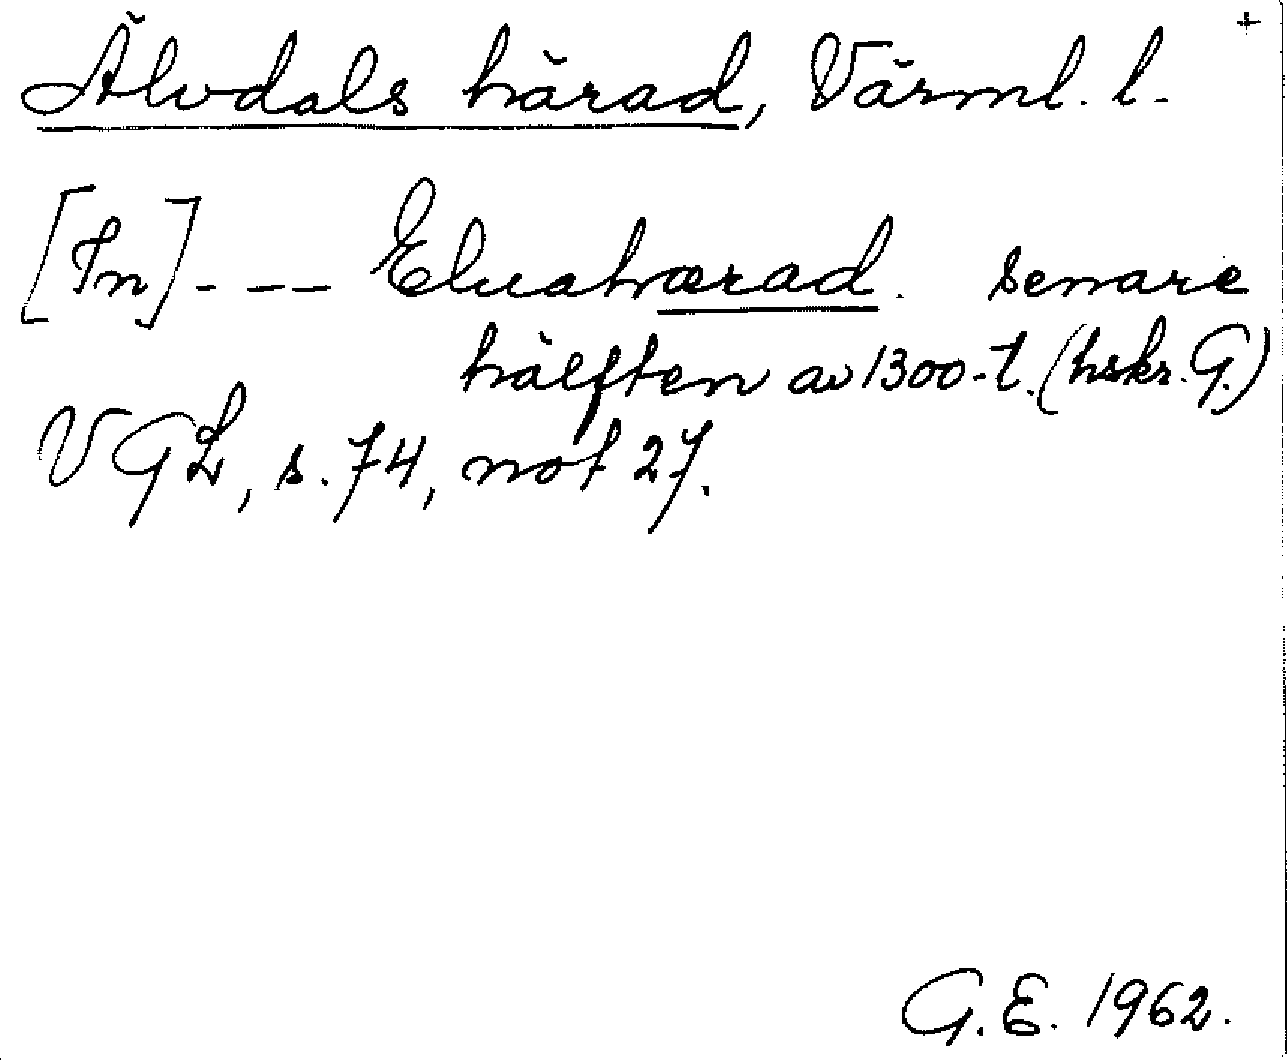 Älvdals härad, Värml. l. +
[In] - - - Eluahærad. senare
hälften av 1300-t. (hskr. G.)
VGL, s. 74, not 27.
G.E. 1962.